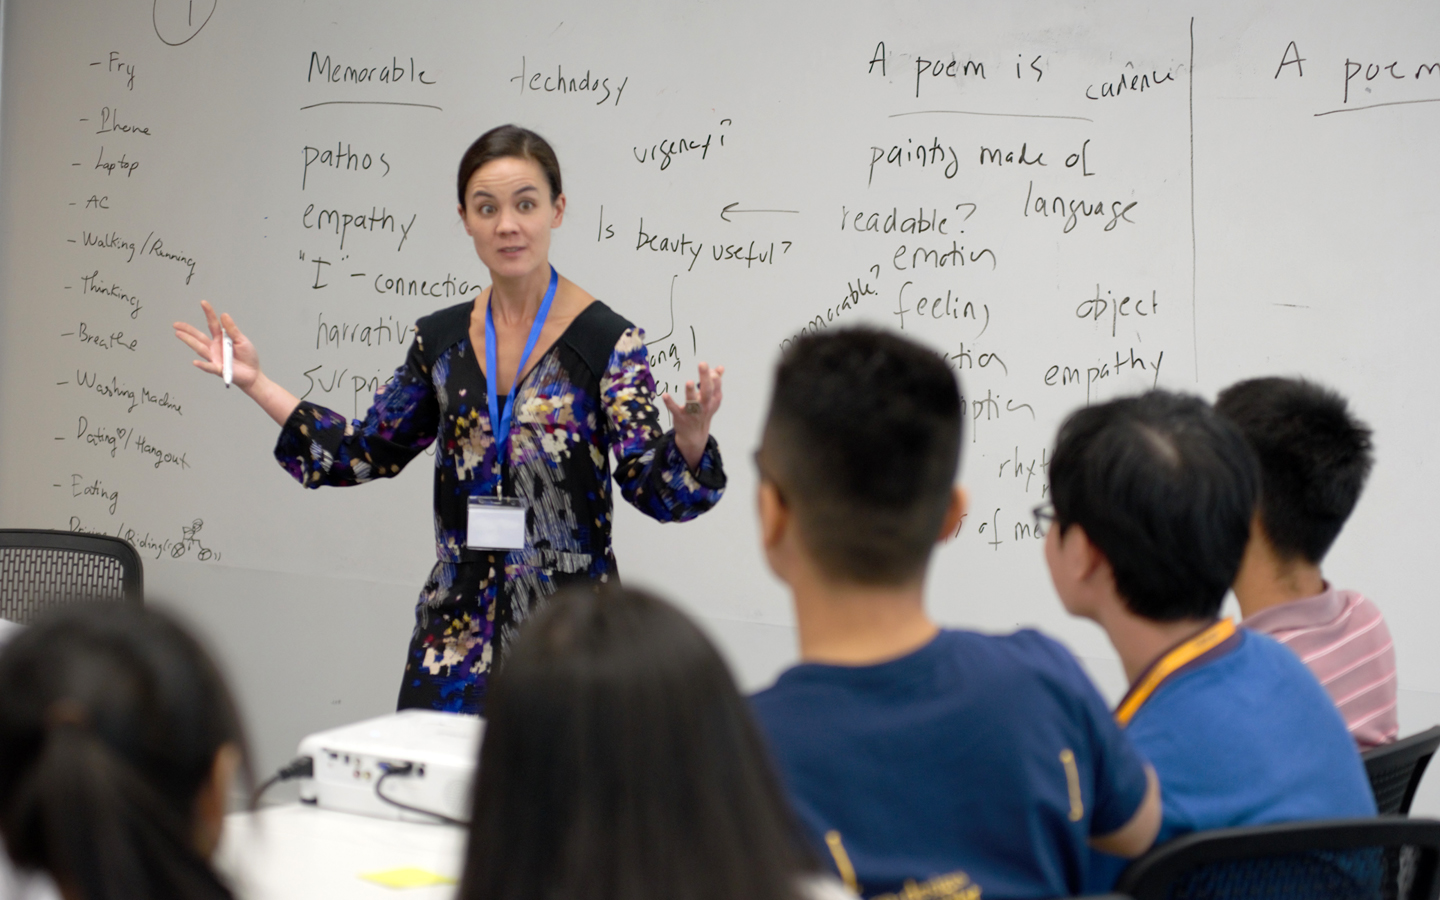 1
- Fry
- Phone
- Laptop
- AC
- Walking / Running
- Thinking
- Breathe
- Washing Machine
- Dating / Hangout
- Eating
/ Riding
Memorable
pathos
empathy
"I" - connection
narrativ
surpri
technology
urgency?
Is beauty useful?
A poem is
cadence
painting made of
language
readable?
emotion
memorable?
feeling
object
empathy
of
A poem